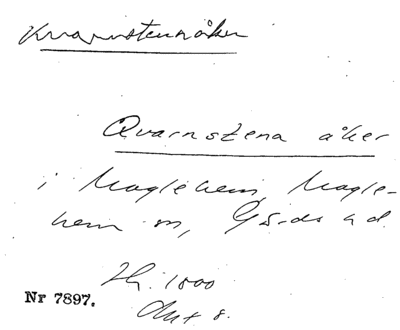 Kvarnstenåker
Qvarnstena åker
i Maglehem, Magle-
hem sn, Gärds hd.
Hf. 1800
Akt 8.
Nr 7897.